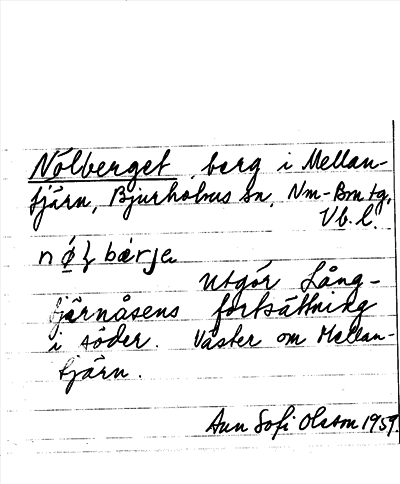 Nölberget, berg i Mellan-
tjärn, Bjurholms sn, Nm-Bm tg,
Vb. l.
utgör Lång-
tjärnåsens fortsättning
i söder. Väster om Mellan-
tjärn.
Ann Sofi Olsson 1959.